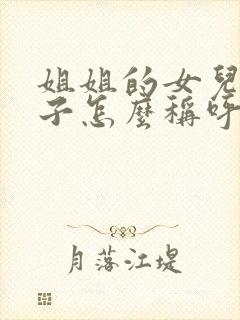 姐姐的女兒
子怎麼稱呼
月落江堤